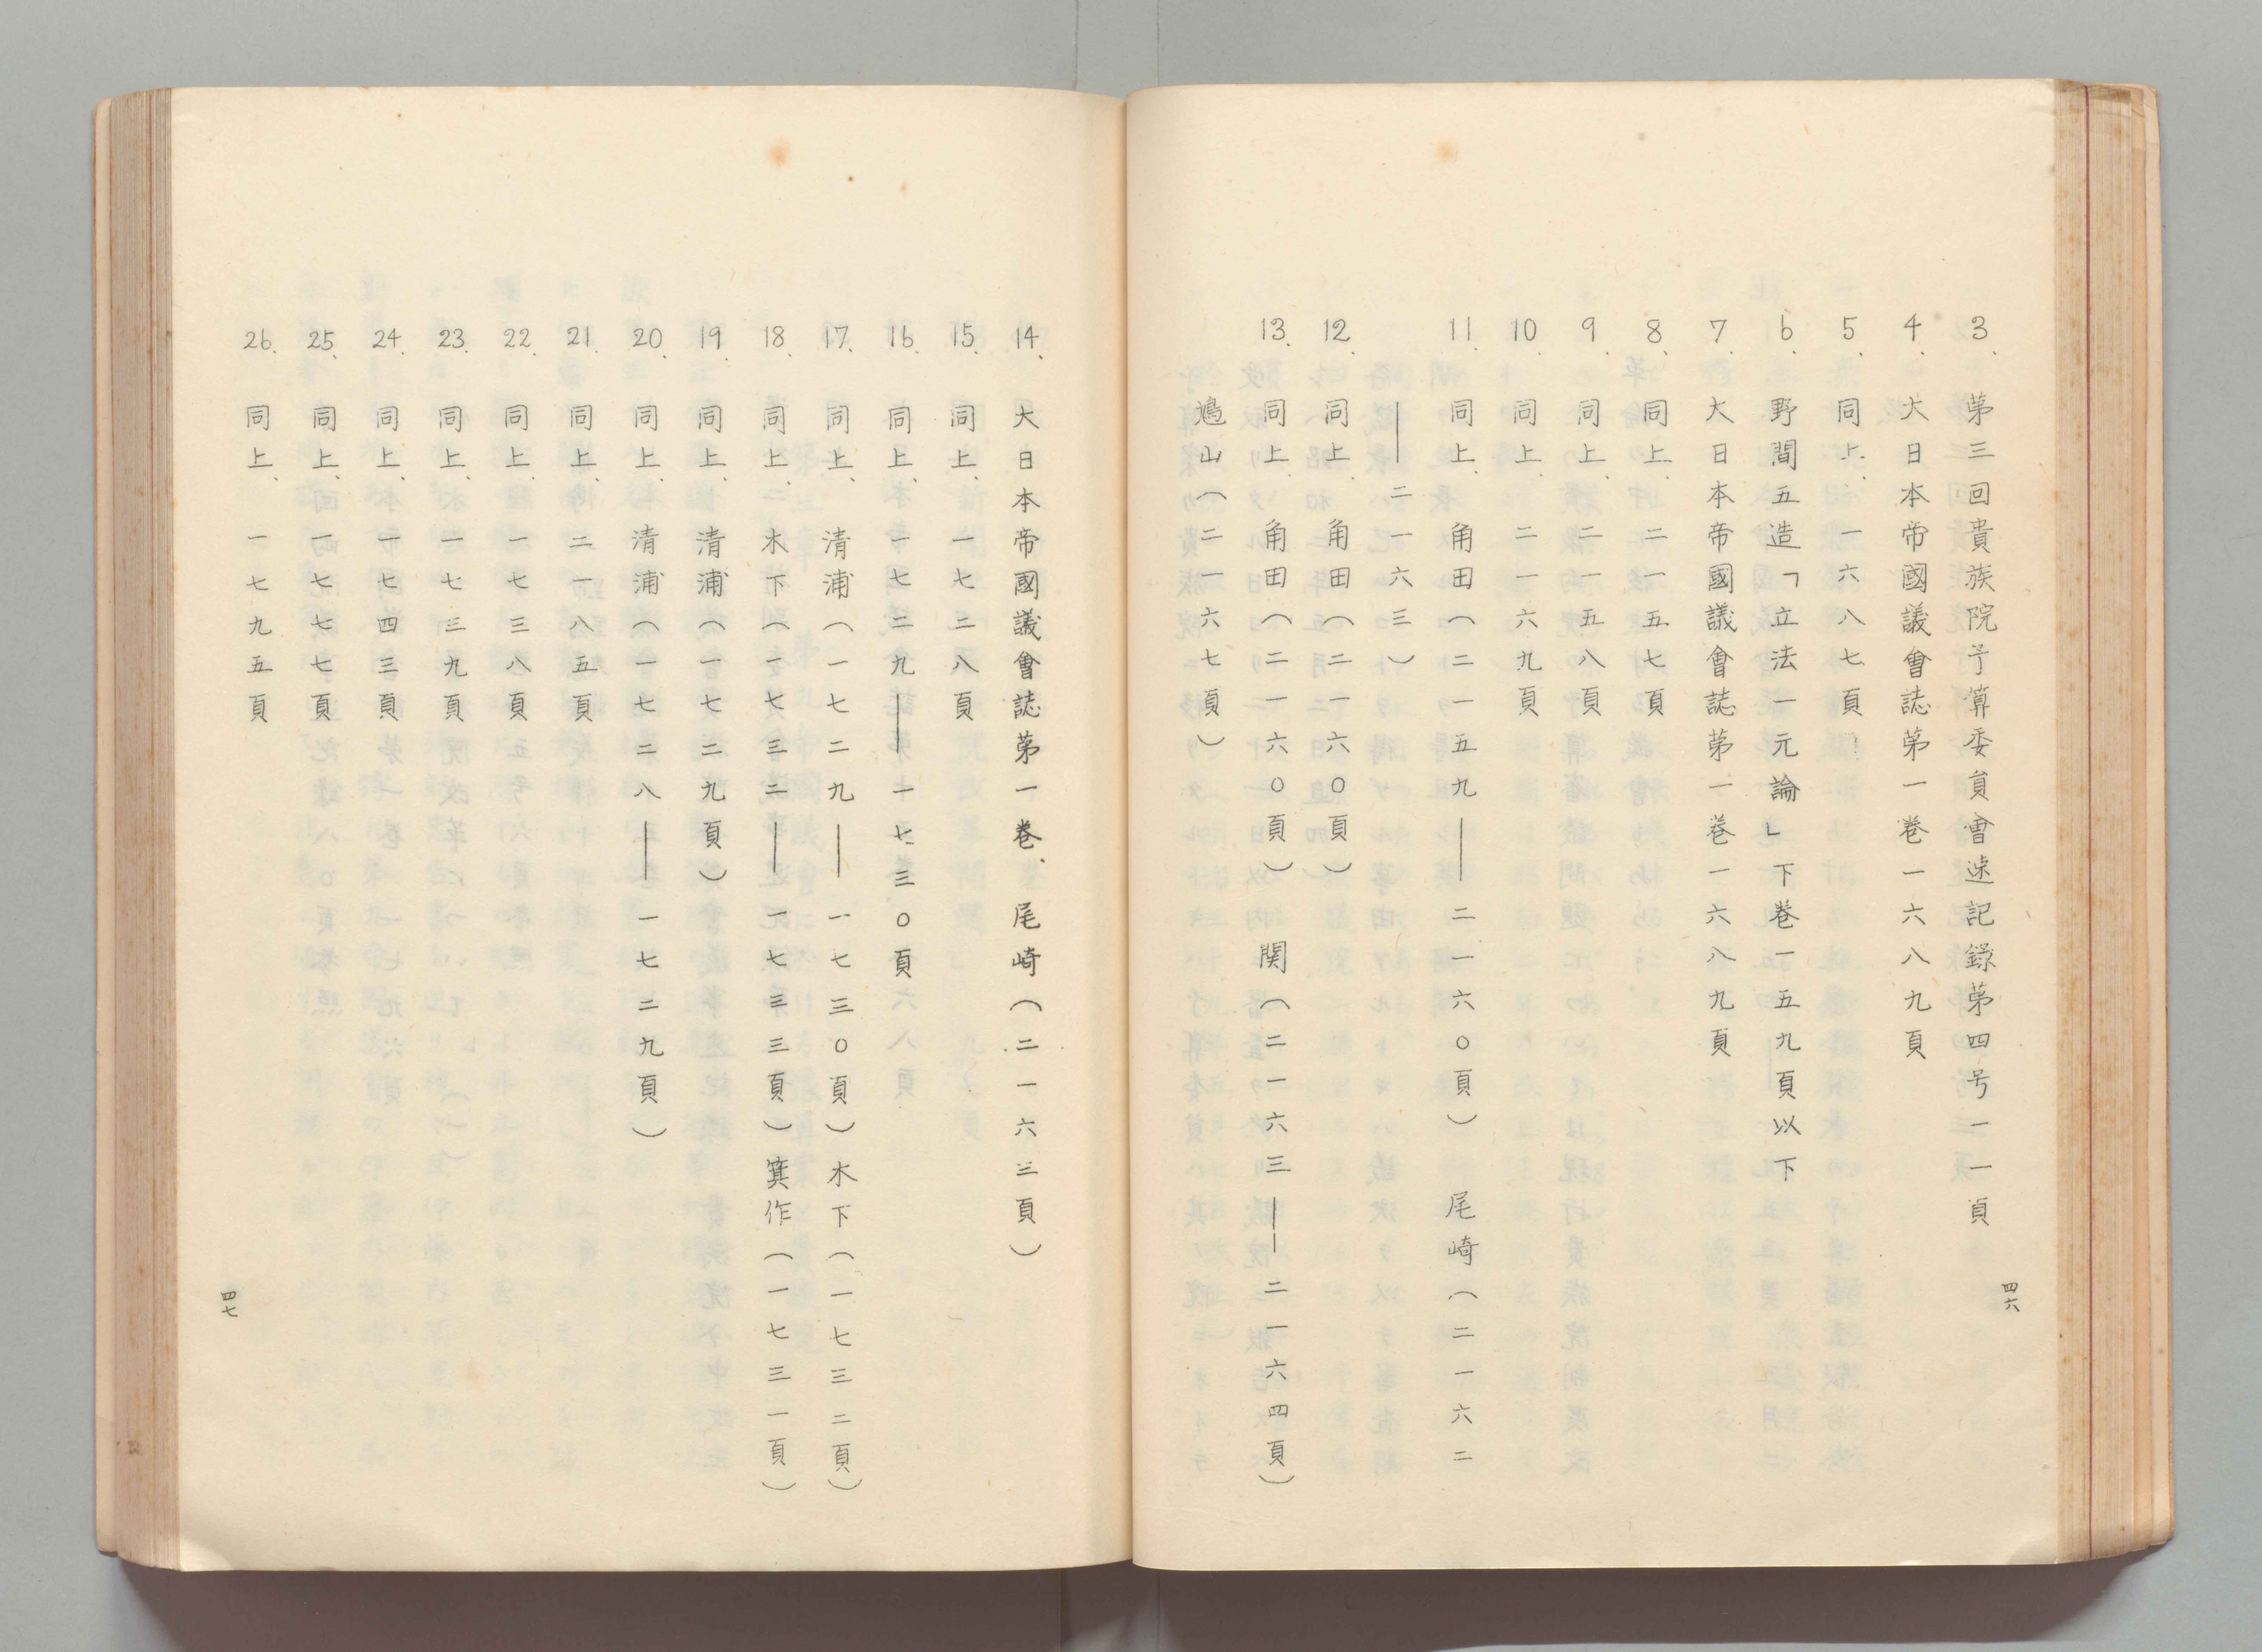 3、第三回貴族院予算委員會速記錄第四号一一頁
4、大日本帝國議會誌第一巻一六八九頁
5、同上、一六八七頁
6、野間五造「立法一元論」下巻一五九頁以下
7、大日本帝國議會誌第一巻一六八九頁
8、同上、二一五七頁
9、同上、二一五八頁
10、同上、二一六九頁
11、同上、角田(二一五九――二一六〇頁) 尾崎(二一六二
――二一六三)
12、同上、角田(二一六〇頁)
13、同上、角田(二一六〇頁) 関(二一六三――二一六四頁)
鳩山(二一六七頁)
四六
14、大日本帝國議會誌第一巻、尾崎(二一六三頁)
15、同上、一七二八頁
16、同上、一七二九――一七三〇頁
17、同上、清浦(一七二九――一七三〇頁)木下(一七三二頁)
18、同上、木下(一七三二――一七三三頁)箕作(一七三一頁)
19、同上、清浦(一七二九頁)
20、同上、清浦(一七二八――一七二九頁)
21、同上、二一八五頁
22、同上、一七三八頁
23、同上、一七三九頁
24、同上、一七四三頁
25、同上、一七七七頁
26、同上、一七九五頁
四七